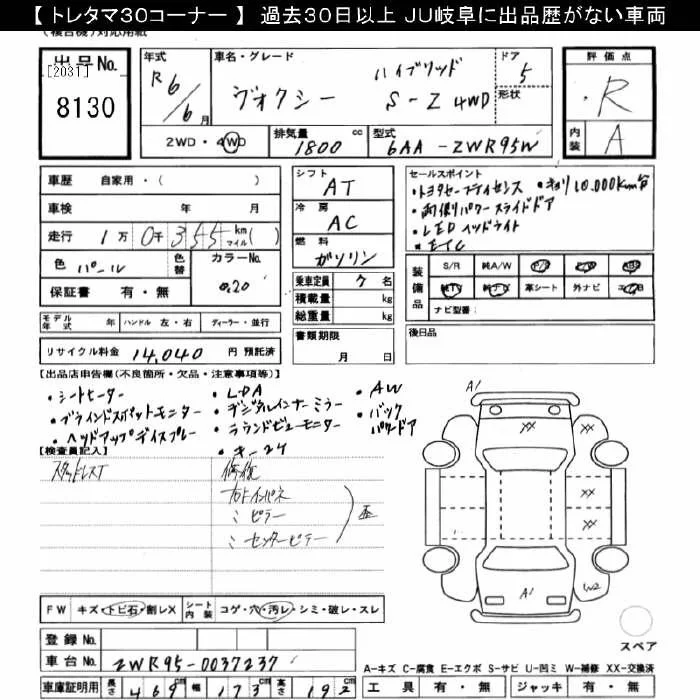 【 トレタマ30コーナー 】 過去30日以上 JU岐阜に出品歴がない車両
出品No.
[2031]
8130
年式
R6/6月
車名・グレード
ハイブリッド
ヴォクシー S-Z 4WD
ドア
5
形状
評価点
R
内装
A
2WD・4WD
排気量 1800 cc
型式 6AA-ZWR95W
車歴 自家用・( )
車検 年 月
走行 1万 0千 355 km マイル( )
色 パール
色替
カラーNo. 020
保証書 有・無
シフト AT
冷房 AC
燃料 ガソリン
乗車定員 7 名
積載量 kg
総重量 kg
書類期限
月 日
セールスポイント
・トヨタセーフティセンス ・キョリ10.000km台
・両側パワースライドドア
・LEDヘッドライト
・ETC
装備品
S/R 純A/W P/S P/W ABS
純TV 純ナビ 革シート 外ナビ エアB
ナビ型番:
後日品
モデル年式 年 ハンドル 左・右 ディーラー・並行
リサイクル料金 14,040 円 預託済
【出品店申告欄(不良箇所・欠品・注意事項等)】
・シートヒーター ・LDA ・AW
・ブラインドスポットモニター ・デジタルインナーミラー ・バック
・ヘッドアップディスプレー ・ラウンドビューモニター パワードア
・キー2ケ
【検査員記入】
スタッドレスT
修復
ミピラー
ミセンターピラー
歪
A1
XX
XX
XX
A1
W2
スペア
FW キズ・トビ石・割レX
シート内装 コゲ・穴・汚レ・シミ・破レ・スレ
登録No.
車台No. ZWR95-0037237
車庫証明用 長さ 469 幅 173 高さ 192
A-キズ C-腐食 E-エクボ S-サビ U-凹ミ W-補修 XX-交換済
工具 有・無 ジャッキ 有・無